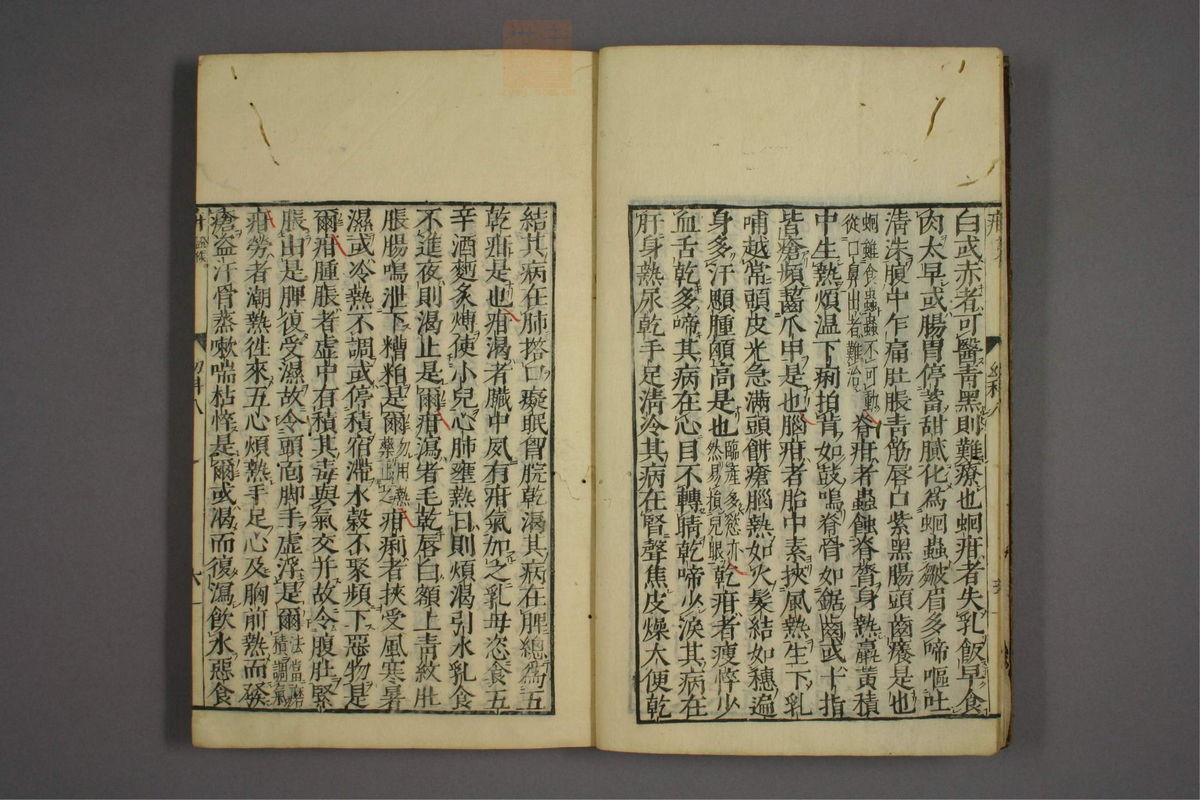 白或赤者可醫青黑則難療也蛔疳者失乳飯早食
肉太早或腸胃停蓄甜膩化為蛔蟲皺眉多啼嘔吐
淸沫腹中乍痛肚脹青筋唇口紫黑腸頭齒癢是也
蛔雖食蟲蟲不可動
從口鼻出者難治
脊疳者蟲蝕脊膂身熱羸黃積
中生熱煩温下痢拍背如鼓鳴脊骨如鋸齒或十指
皆瘡頻齧爪甲是也腦疳者胎中素挾風熱生下乳
哺越常頭皮光急滿頭餅瘡腦熱如火髮結如穗遍
身多汗顋腫顖高是也
臨產多慾亦
然易損兒眼
乾疳者瘦悴少
血舌乾多啼其病在心目不轉睛乾啼少淚其病在
肝身熱尿乾手足淸冷其病在腎聲焦皮燥大便乾
結其病在肺搭口癡眠胷脘乾渴其病在脾總為五
乾疳是也疳渴者臟中夙有疳氣加之乳母恣食五
辛酒麪炙煿使小兒心肺壅熱日則煩渴引水乳食
不進夜則渴止是爾疳瀉者毛乾唇白額上青紋肚
脹腸鳴泄下糟粕是爾
勿用熱
藥止之
疳痢者挾受風寒暑
濕或冷熱不調或停積宿滯水穀不聚頻下惡物是
爾疳腫脹者虛中有積其毒與氣交并故令腹肚緊
脹由是脾復受濕故令頭面脚手虛浮是爾
法當磨
積調氣
疳勞者潮熱徃來五心煩熱手足心及胸前熱而發
瘡盜汗骨蒸嗽喘枯悴是爾或渴而復瀉飲水惡食